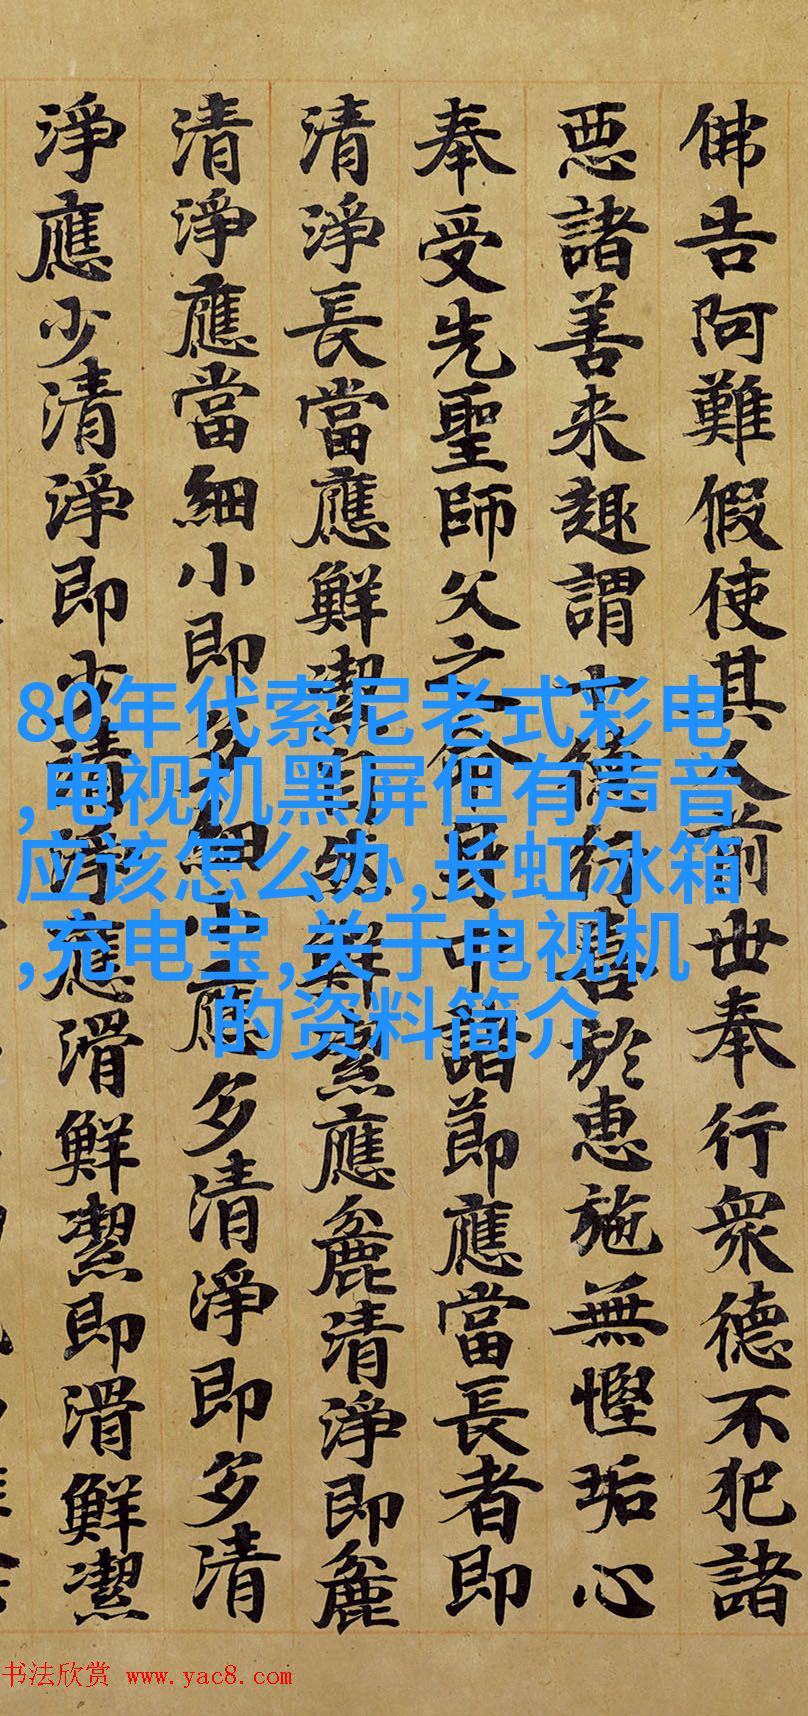 佛告阿難假使其人前世奉行眾德不犯諸
悪諸善来趣謂行喜於惠施無慳垢心
奉受先聖師父之命身中諸節應當長者即
清淨長當應鮮潔自然鮮潔應麁清淨即麁
清淨應當細小即細小應多清淨即多清
淨應少清淨即少清淨應滑鮮潔即滑鮮潔
80年代索尼老式彩电
,电视机黑屏但有声音
应该怎么办,长虹冰箱
,充电宝,关于电视机
的资料简介
书法欣赏 www.yac8.com